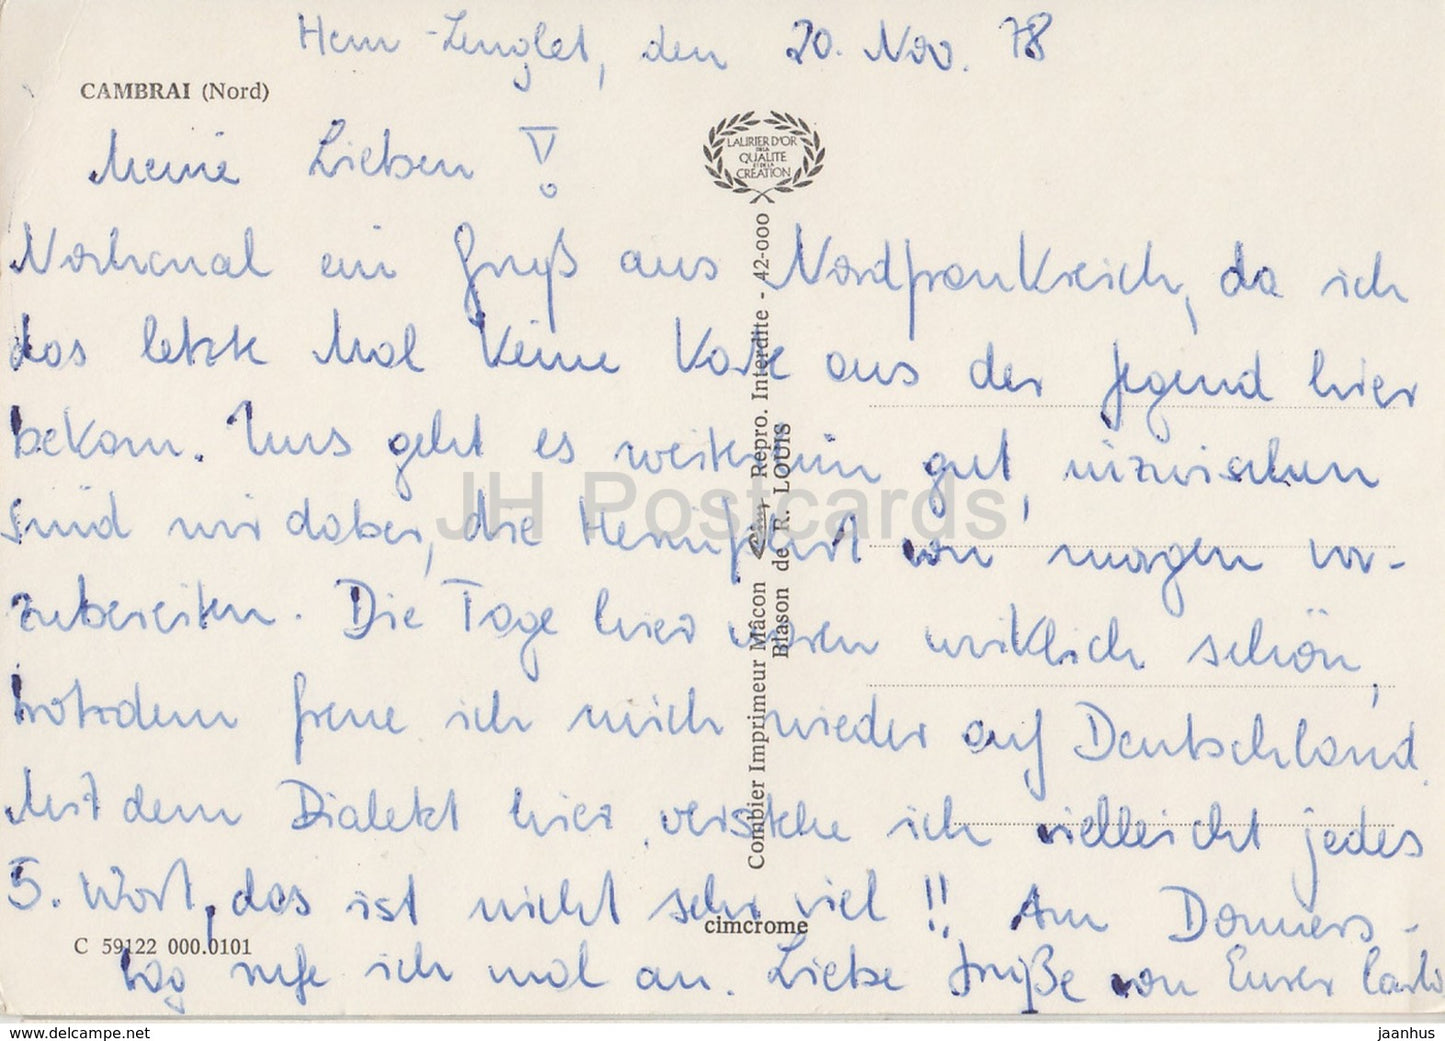 Hem-Lenglet, den 20. Nov. 78
CAMBRAI (Nord)
Meine Lieben !
LAURIER D'OR
DE LA
QUALITE
ET DE LA
CREATION
Nochmal ein Gruß aus Nordfrankreich, da ich
das letzte Mal keine Karte aus der Gegend hier
bekam. Uns geht es weiterhin gut, inzwischen
sind wir dabei, die Heimfahrt von morgen vor-
zubereiten. Die Tage hier waren wirklich schön,
trotzdem freue ich mich wieder auf Deutschland.
Mit dem Dialekt hier verstehe ich vielleicht jedes
5. Wort, das ist nicht sehr viel !! Am Donners-
tag rufe ich mal an. Liebe Grüße von Eurer Carla
Combier Imprimeur Mâcon Cim Repro. Interdite - 42-000
Blason de R. LOUIS
cimcrome
C 59122 000.0101
JH Postcards
www.delcampe.net
jaanhus